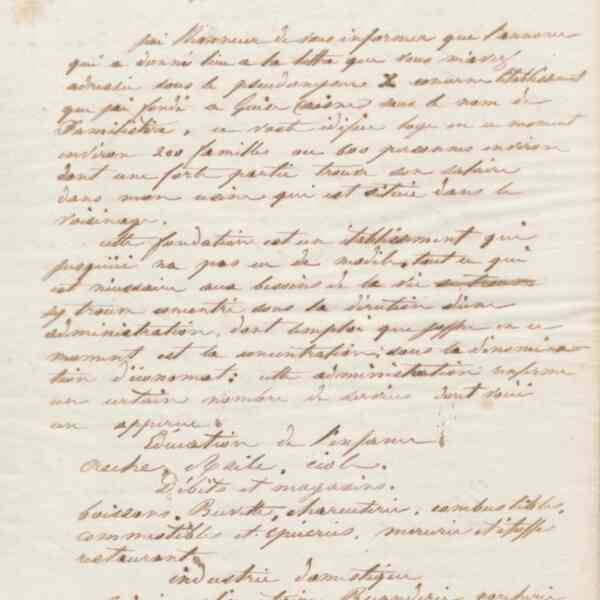 j'ai l'honneur de vous informer que l'annonce
qui a donné lieu a la lettre que vous m'avez
adressée sous le pseudonyme X concerne l'établissement
que j'ai fondé a Guise (aisne) sous le nom de
Familistère, ce vaste édifice loge en ce moment
environ 200 familles ou 600 personnes environ
dont une forte partie trouve son salaire
dans mon usine qui est située dans le
voisinage.
cette fondation est un établissement qui
jusqu'ici n'a pas eu de modèle, tout ce qui
est nécessaire aux besoins de la vie se trouve
s'y trouve concentré sous la direction d'une
administration, dont l'emploi que j'offre en ce
moment est la concentration; sous la dénomina-
tion d'économat; cette administration renferme
un certain nombre de services dont voici
un apperçu:
Education de l'enfance
Crèche, Asile, école.
Débits et magasins.
boissons, Buvette, charcuterie, combustibles,
commestibles et épiceries, mercerie et étoffes
restaurant
industrie domestique
Buanderie